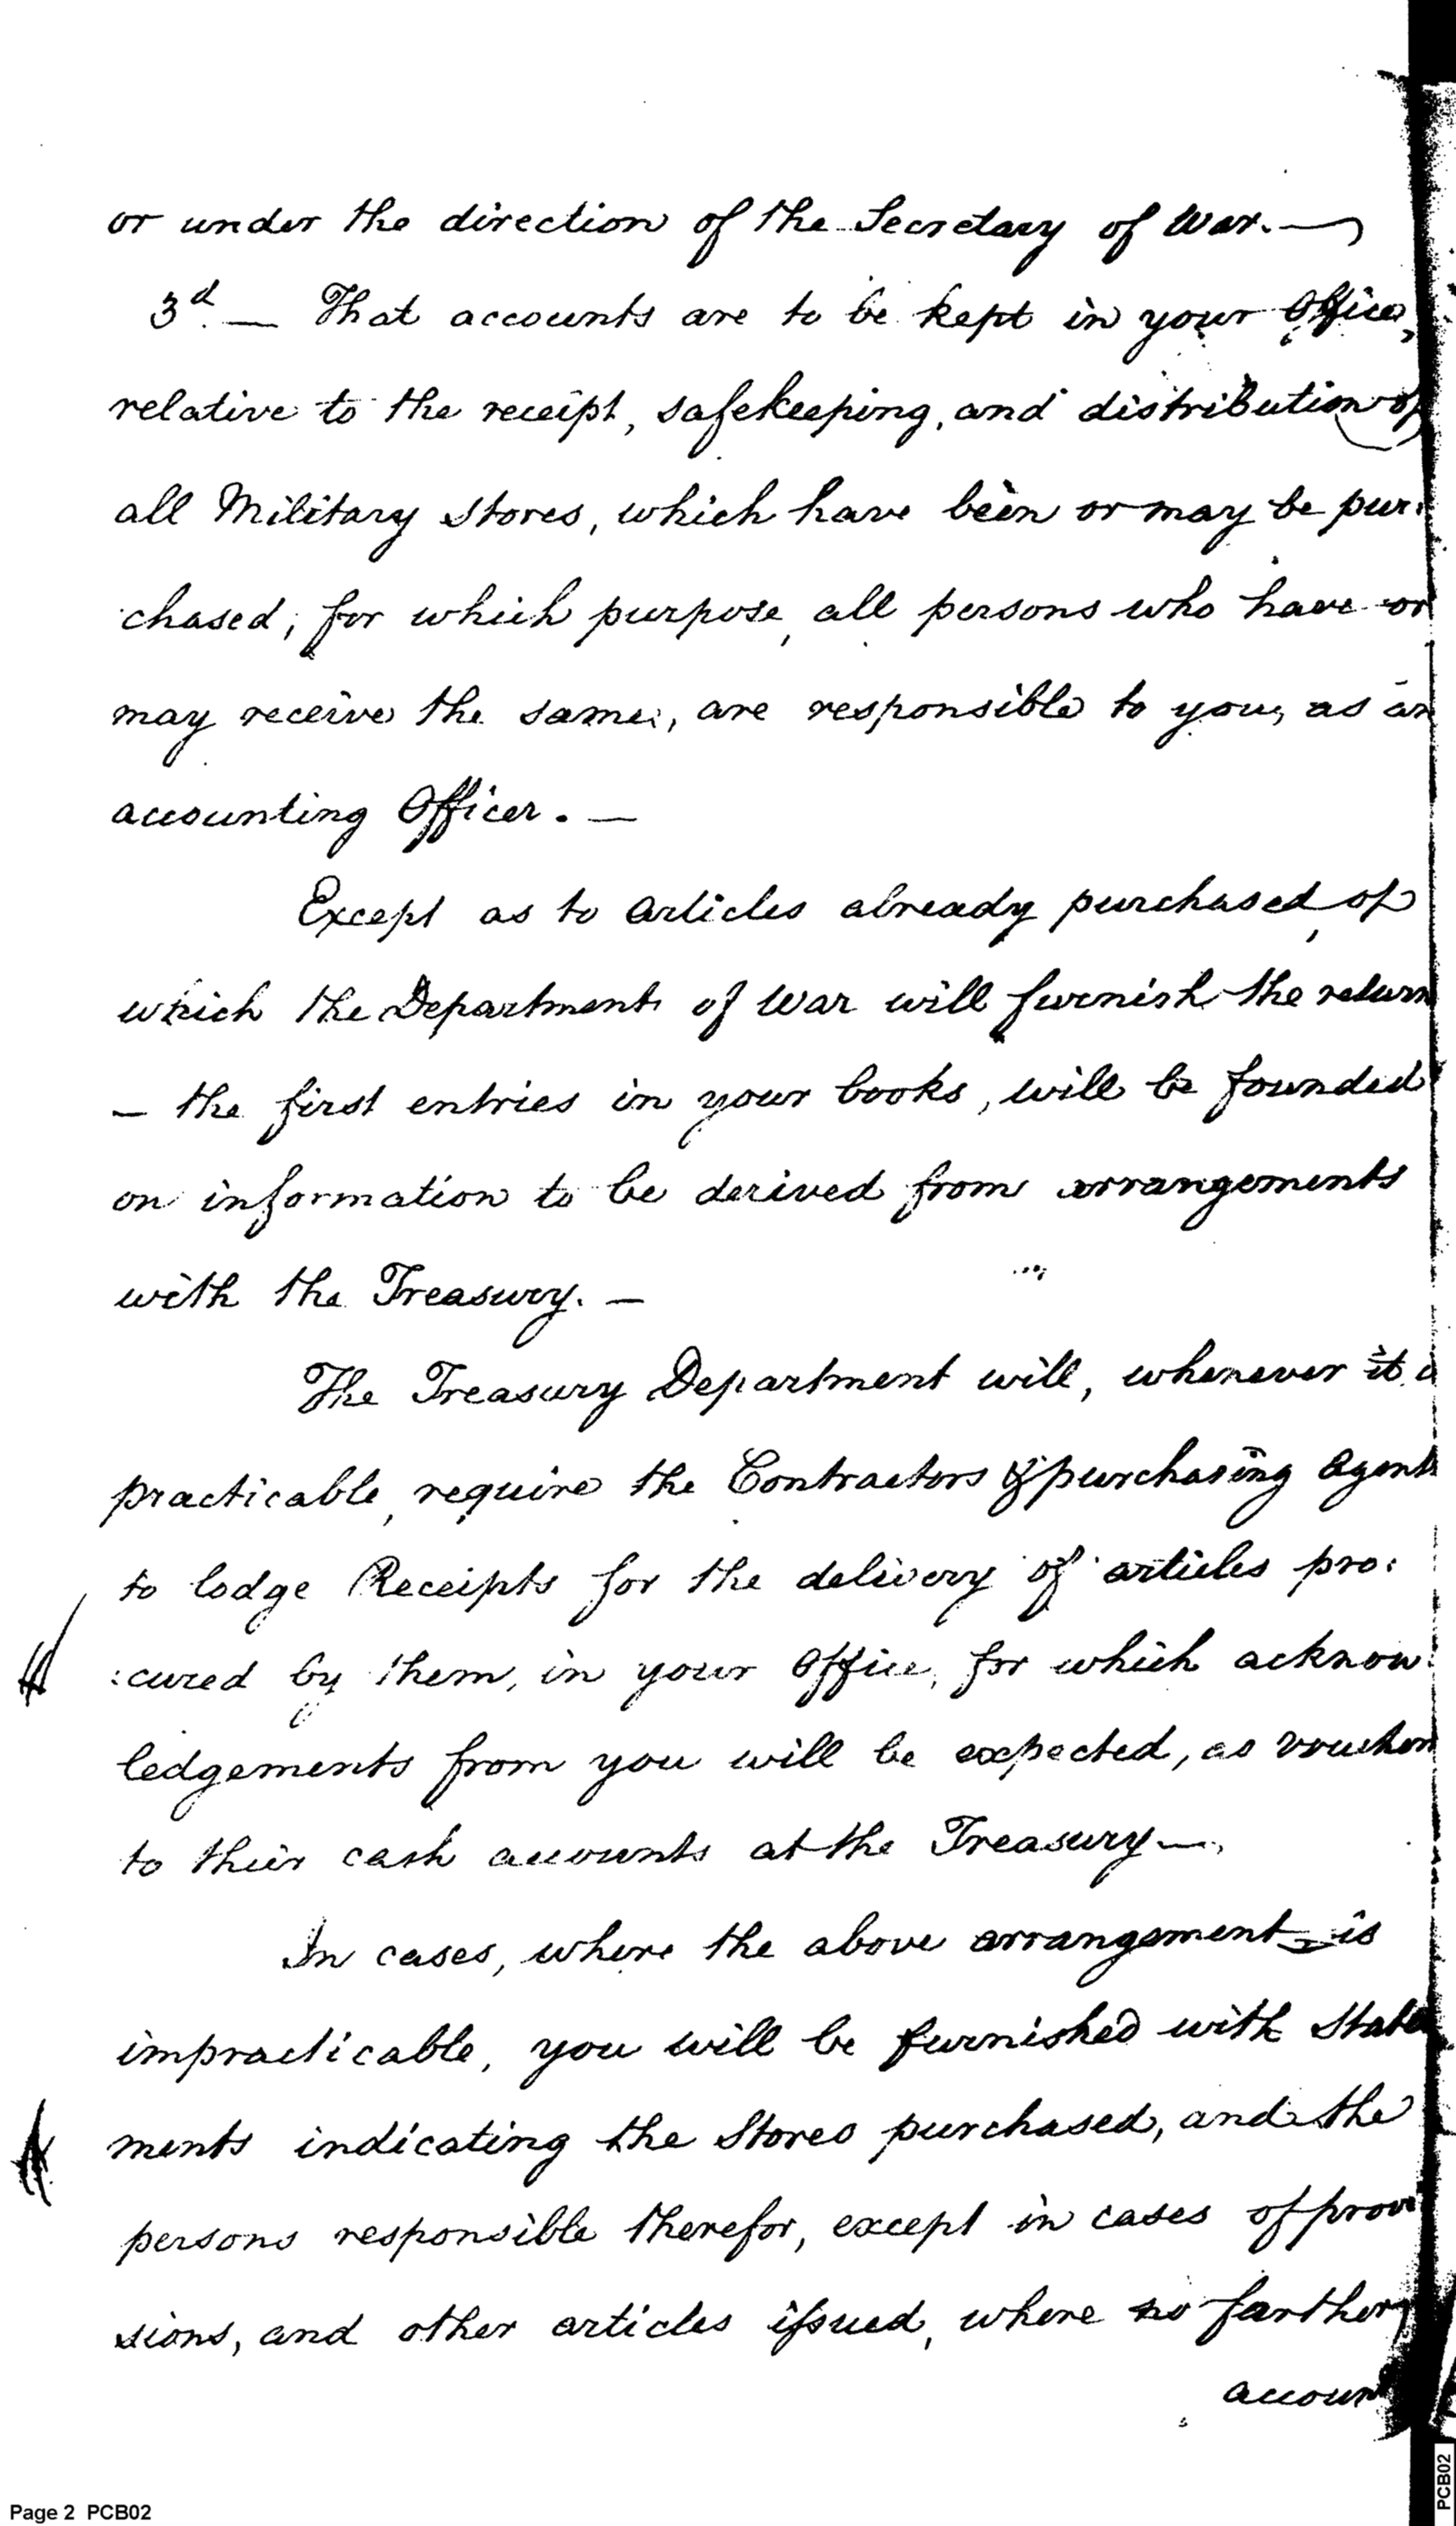 or under the direction of the Secretary of War. —
3d. — That accounts are to be kept in your Office,
relative to the receipt, safekeeping, and distribution of
all Military Stores, which have been or may be pur:
chased; for which purpose, all persons who have or
may receive the same, are responsible to you, as an
accounting Officer. —
Except as to articles already purchased, of
which the Department of War will furnish the return
— the first entries in your books, will be founded
on information to be derived from arrangements
with the Treasury. —
The Treasury Department will, whenever it
practicable, require the Contractors & purchasing Agents
to lodge Receipts for the delivery of articles pro:
:cured by them, in your Office, for which acknow:
ledgements from you will be expected, as vouchers
to their cash accounts at the Treasury —
In cases, where the above arrangement is
impracticable, you will be furnished with State
ments indicating the Stores purchased, and the
persons responsible therefor, except in cases of provi
sions, and other articles issued, where no farther
account
Page 2 PCB02
PCB02